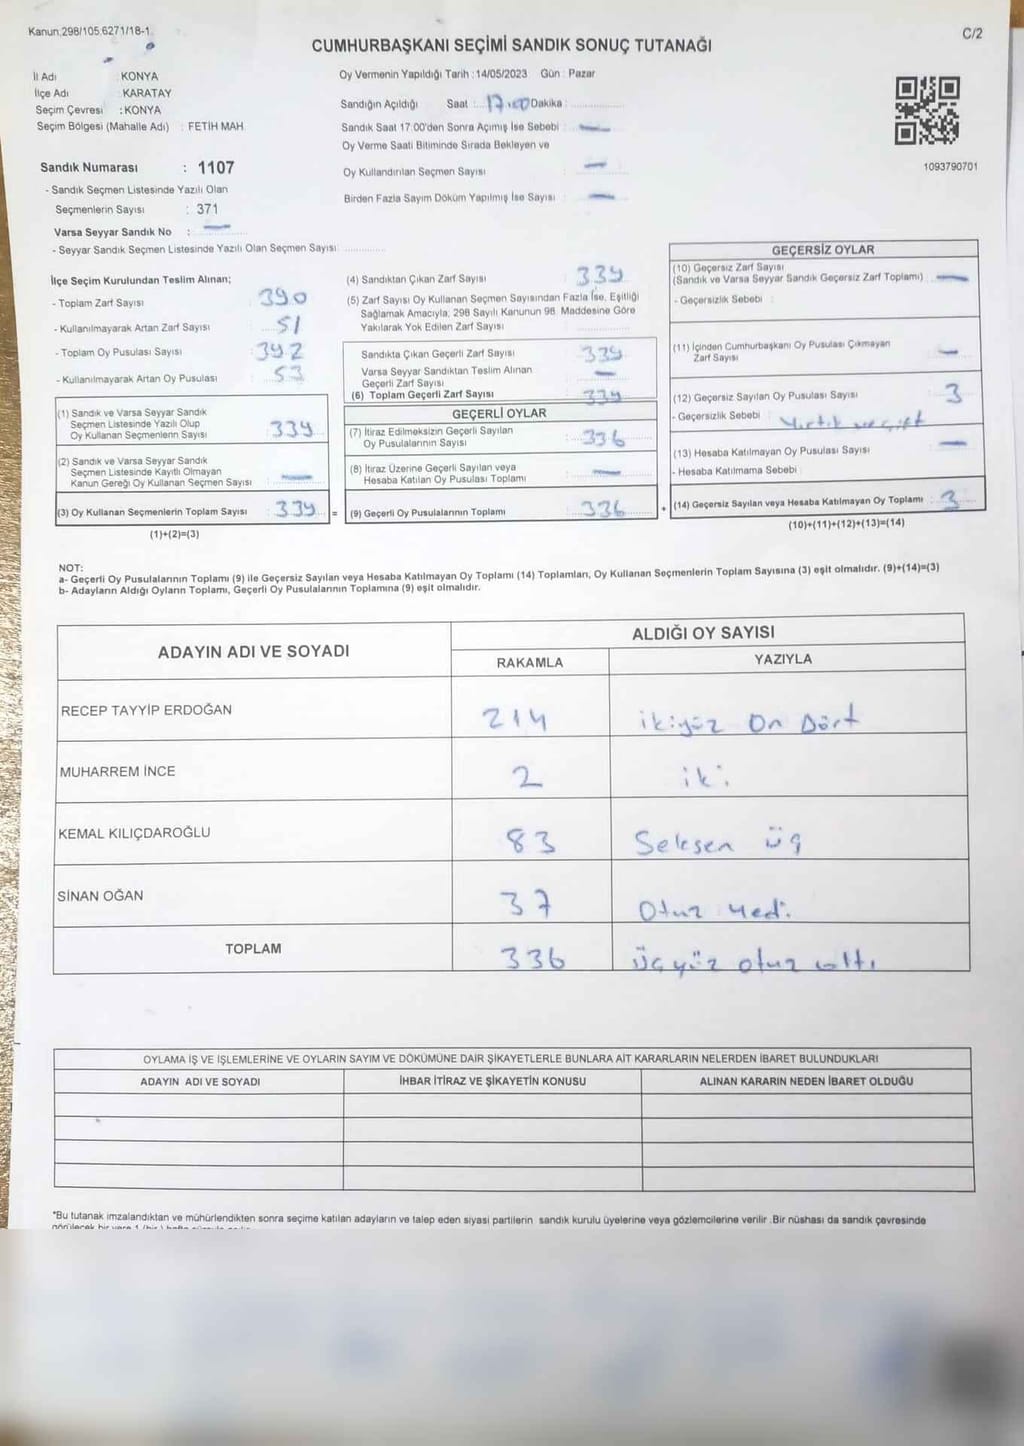 Kanun:298/105,6271/18-1.
C/2
CUMHURBAŞKANI SEÇİMİ SANDIK SONUÇ TUTANAĞI
İl Adı : KONYA
İlçe Adı : KARATAY
Seçim Çevresi : KONYA
Seçim Bölgesi (Mahalle Adı) : FETİH MAH
Oy Vermenin Yapıldığı Tarih : 14/05/2023 Gün : Pazar
Sandığın Açıldığı Saat : 17:00 Dakika :
Sandık Saat 17.00'den Sonra Açımış İse Sebebi : —
Oy Verme Saati Bitiminde Sırada Bekleyen ve
Oy Kullandırılan Seçmen Sayısı : —
Birden Fazla Sayım Döküm Yapılmış İse Sayısı : —
1093790701
Sandık Numarası : 1107
- Sandık Seçmen Listesinde Yazılı Olan
Seçmenlerin Sayısı : 371
Varsa Seyyar Sandık No : —
- Seyyar Sandık Seçmen Listesinde Yazılı Olan Seçmen Sayısı :
İlçe Seçim Kurulundan Teslim Alınan;
- Toplam Zarf Sayısı : 390
- Kullanılmayarak Artan Zarf Sayısı : 51
- Toplam Oy Pusulası Sayısı : 392
- Kullanılmayarak Artan Oy Pusulası : 53
(1) Sandık ve Varsa Seyyar Sandık
Seçmen Listesinde Yazılı Olup
Oy Kullanan Seçmenlerin Sayısı : 339
(2) Sandık ve Varsa Seyyar Sandık
Seçmen Listesinde Kayıtlı Olmayan
Kanun Gereği Oy Kullanan Seçmen Sayısı : —
(3) Oy Kullanan Seçmenlerin Toplam Sayısı : 339 =
(1)+(2)=(3)
(4) Sandıktan Çıkan Zarf Sayısı : 339
(5) Zarf Sayısı Oy Kullanan Seçmen Sayısından Fazla İse, Eşitliği
Sağlamak Amacıyla, 298 Sayılı Kanunun 98. Maddesine Göre
Yakılarak Yok Edilen Zarf Sayısı :
Sandıkta Çıkan Geçerli Zarf Sayısı : 339
Varsa Seyyar Sandıktan Teslim Alınan
Geçerli Zarf Sayısı : —
(6) Toplam Geçerli Zarf Sayısı : 339
GEÇERLİ OYLAR
(7) İtiraz Edilmeksizin Geçerli Sayılan
Oy Pusulalarının Sayısı : 336
(8) İtiraz Üzerine Geçerli Sayılan veya
Hesaba Katılan Oy Pusulası Toplamı : —
(9) Geçerli Oy Pusulalarının Toplamı : 336 +
GEÇERSİZ OYLAR
(10) Geçersiz Zarf Sayısı
(Sandık ve Varsa Seyyar Sandık Geçersiz Zarf Toplamı) : —
- Geçersizlik Sebebi :
(11) İçinden Cumhurbaşkanı Oy Pusulası Çıkmayan
Zarf Sayısı : —
(12) Geçersiz Sayılan Oy Pusulası Sayısı : 3
- Geçersizlik Sebebi : Yırtık ve çift
(13) Hesaba Katılmayan Oy Pusulası Sayısı : —
- Hesaba Katılmama Sebebi :
(14) Geçersiz Sayılan veya Hesaba Katılmayan Oy Toplamı : 3
(10)+(11)+(12)+(13)=(14)
NOT:
a- Geçerli Oy Pusulalarının Toplamı (9) ile Geçersiz Sayılan veya Hesaba Katılmayan Oy Toplamı (14) Toplamları, Oy Kullanan Seçmenlerin Toplam Sayısına (3) eşit olmalıdır. (9)+(14)=(3)
b- Adayların Aldığı Oyların Toplamı, Geçerli Oy Pusulalarının Toplamına (9) eşit olmalıdır.
ADAYIN ADI VE SOYADI
ALDIĞI OY SAYISI
RAKAMLA YAZIYLA
RECEP TAYYİP ERDOĞAN 214 ikiyüz On Dört
MUHARREM İNCE 2 iki
KEMAL KILIÇDAROĞLU 83 Seksen üç
SİNAN OĞAN 37 Otuz Yedi
TOPLAM 336 üçyüz otuz altı
OYLAMA İŞ VE İŞLEMLERİNE VE OYLARIN SAYIM VE DÖKÜMÜNE DAİR ŞİKAYETLERLE BUNLARA AİT KARARLARIN NELERDEN İBARET BULUNDUKLARI
ADAYIN ADI VE SOYADI İHBAR İTİRAZ VE ŞİKAYETİN KONUSU ALINAN KARARIN NEDEN İBARET OLDUĞU
*Bu tutanak imzalandıktan ve mühürlendikten sonra seçime katılan adayların ve talep eden siyasi partilerin sandık kurulu üyelerine veya gözlemcilerine verilir .Bir nüshası da sandık çevresinde